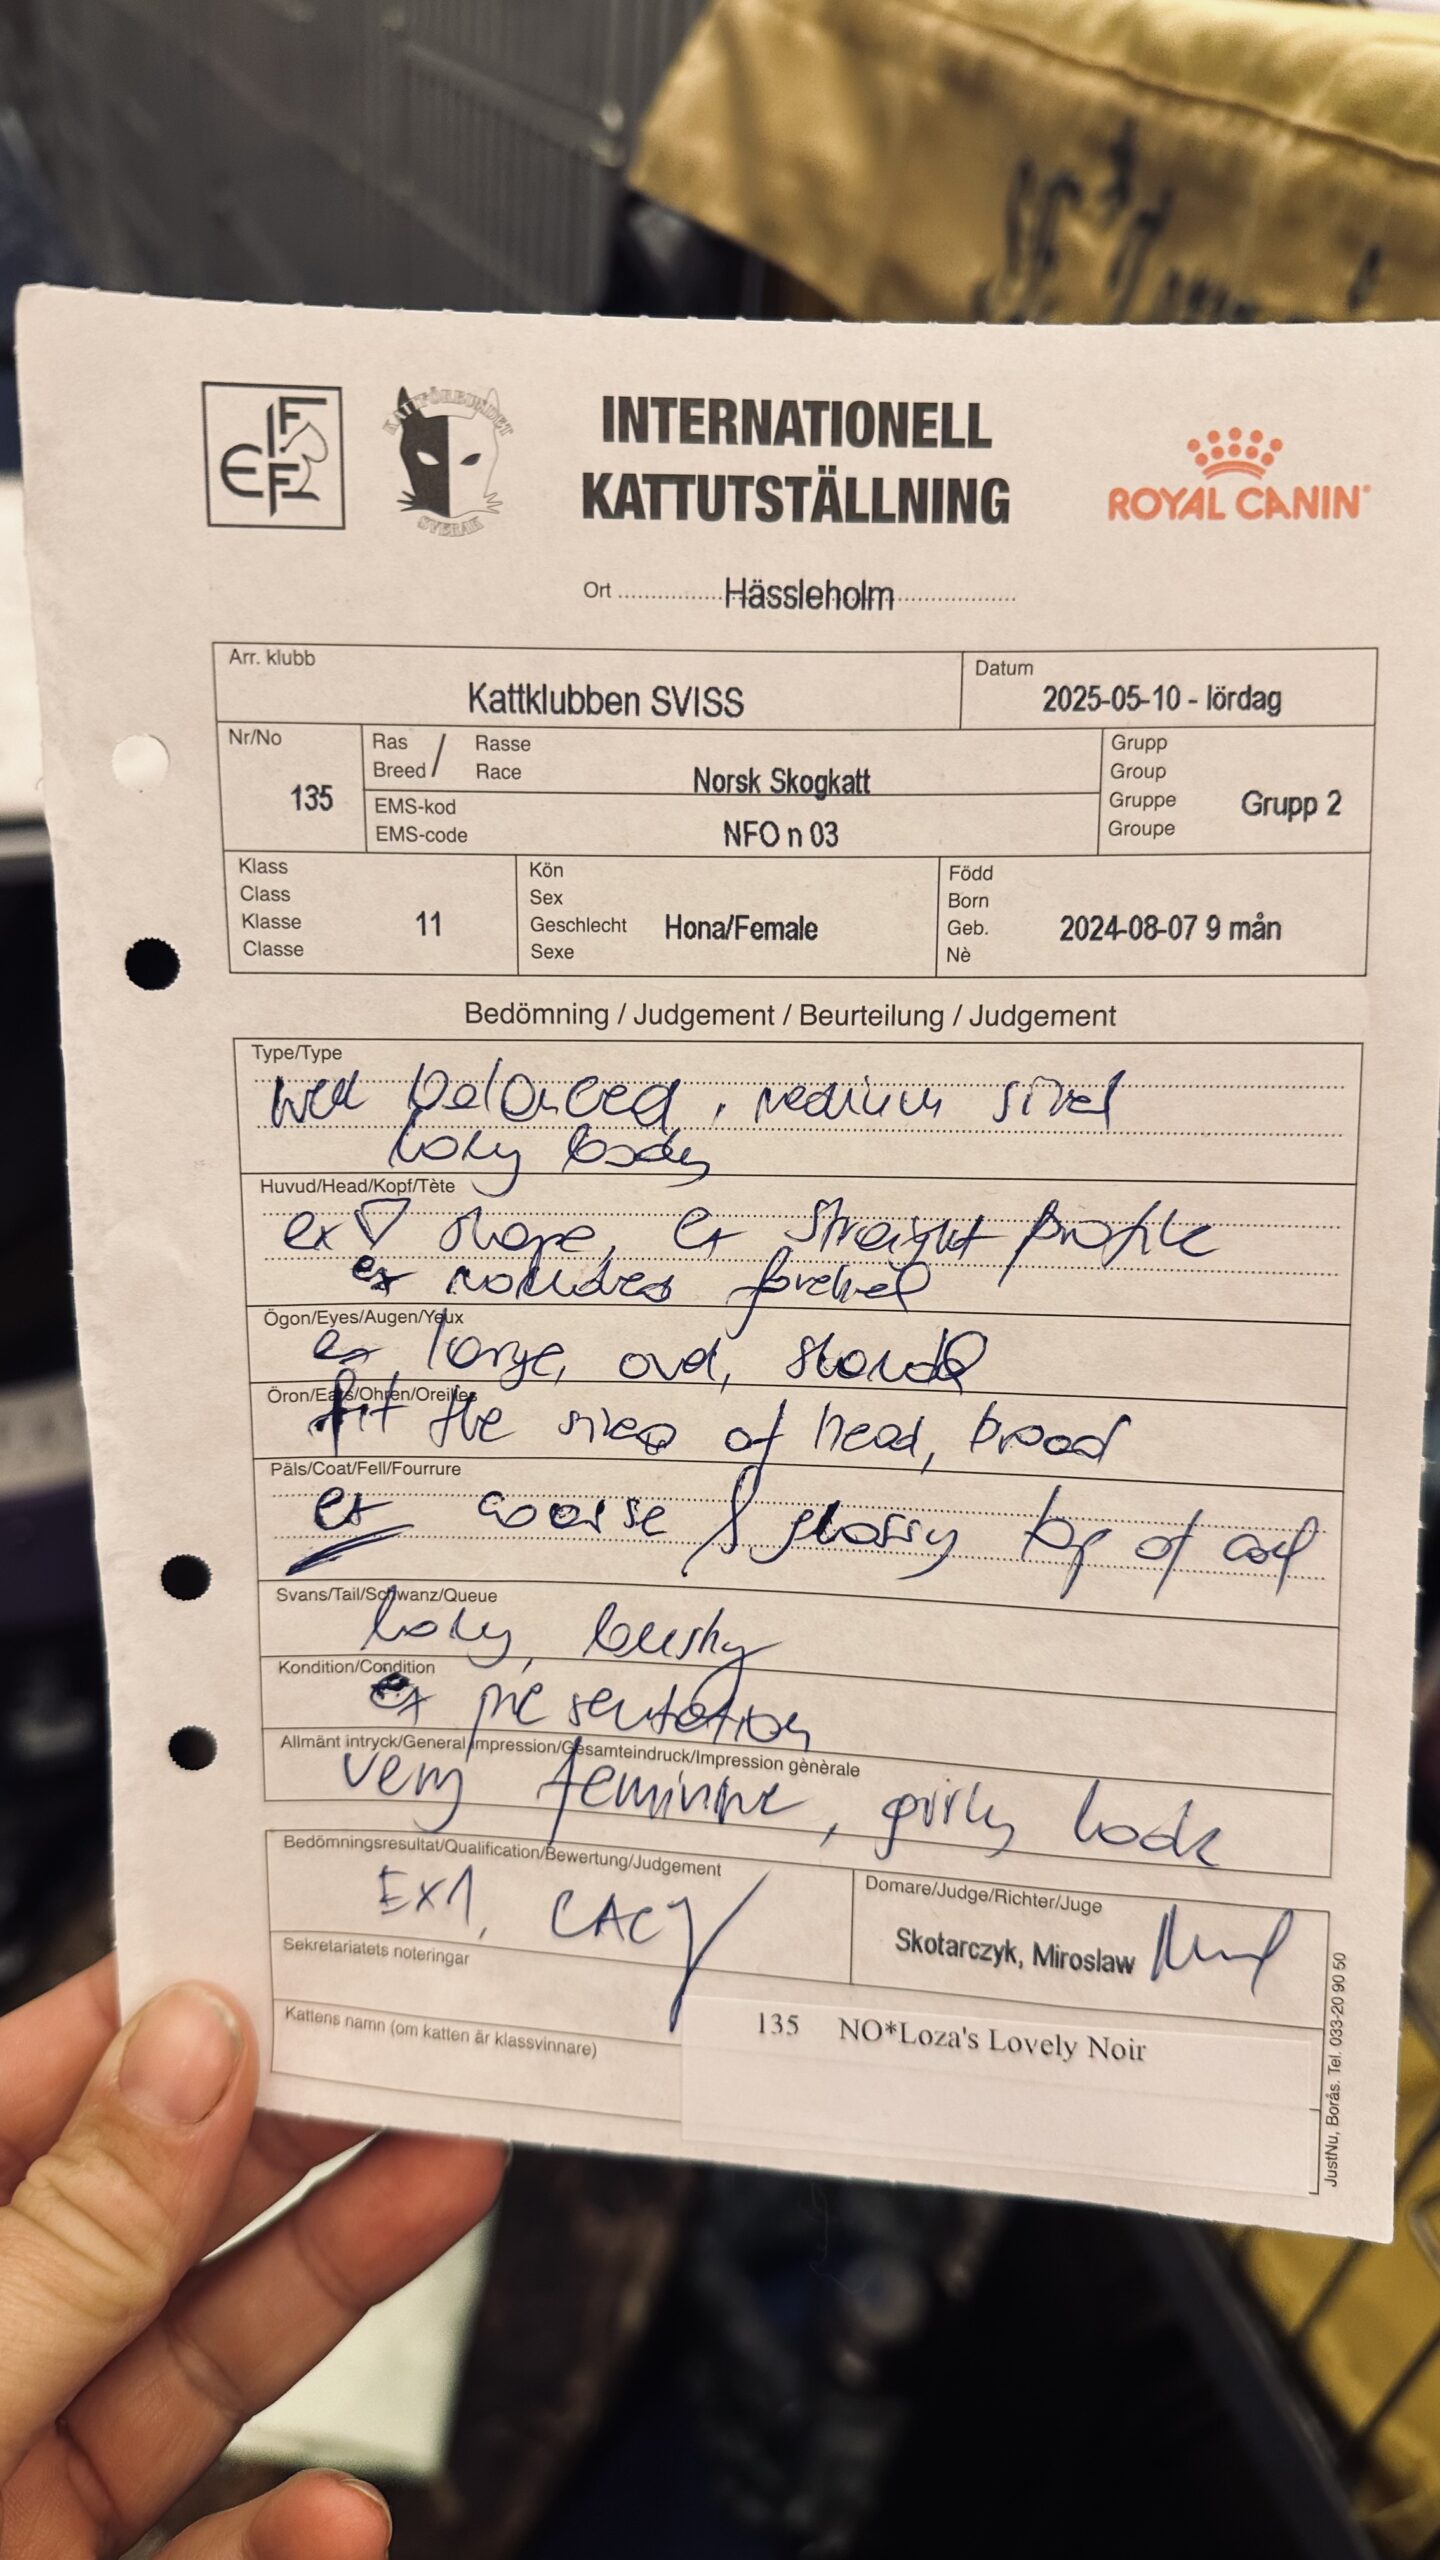 FIFE
KATTFÖRBUNDET
SVERAK
INTERNATIONELL
KATTUTSTÄLLNING
ROYAL CANIN
Ort Hässleholm
Arr. klubb
Kattklubben SVISS
Datum
2025-05-10 - lördag
Nr/No
135
Ras / Rasse
Breed / Race
Norsk Skogkatt
EMS-kod
EMS-code
NFO n 03
Grupp
Group
Gruppe
Groupe
Grupp 2
Klass
Class
Klasse
Classe
11
Kön
Sex
Geschlecht
Sexe
Hona/Female
Född
Born
Geb.
Nè
2024-08-07 9 mån
Bedömning / Judgement / Beurteilung / Judgement
Type/Type
well balanced, medium sized
long body
Huvud/Head/Kopf/Tète
ex ▽ shape, ex straight profile
ex forehead
Ögon/Eyes/Augen/Yeux
ex large, oval,
Öron/Ears/Ohren/Oreilles
fit the of head, broad
Päls/Coat/Fell/Fourrure
ex coarse & glossy top of coat
Svans/Tail/Schwanz/Queue
long, bushy
Kondition/Condition
ex presentation
Allmänt intryck/General Impression/Gesamteindruck/Impression gènèrale
very feminine, girly look
Bedömningsresultat/Qualification/Bewertung/Judgement
Ex1, CACJ
Domare/Judge/Richter/Juge
Skotarczyk, Miroslaw
Sekretariatets noteringar
Kattens namn (om katten är klassvinnare)
135 NO*Loza's Lovely Noir
JustNu, Borås. Tel. 033-20 90 50